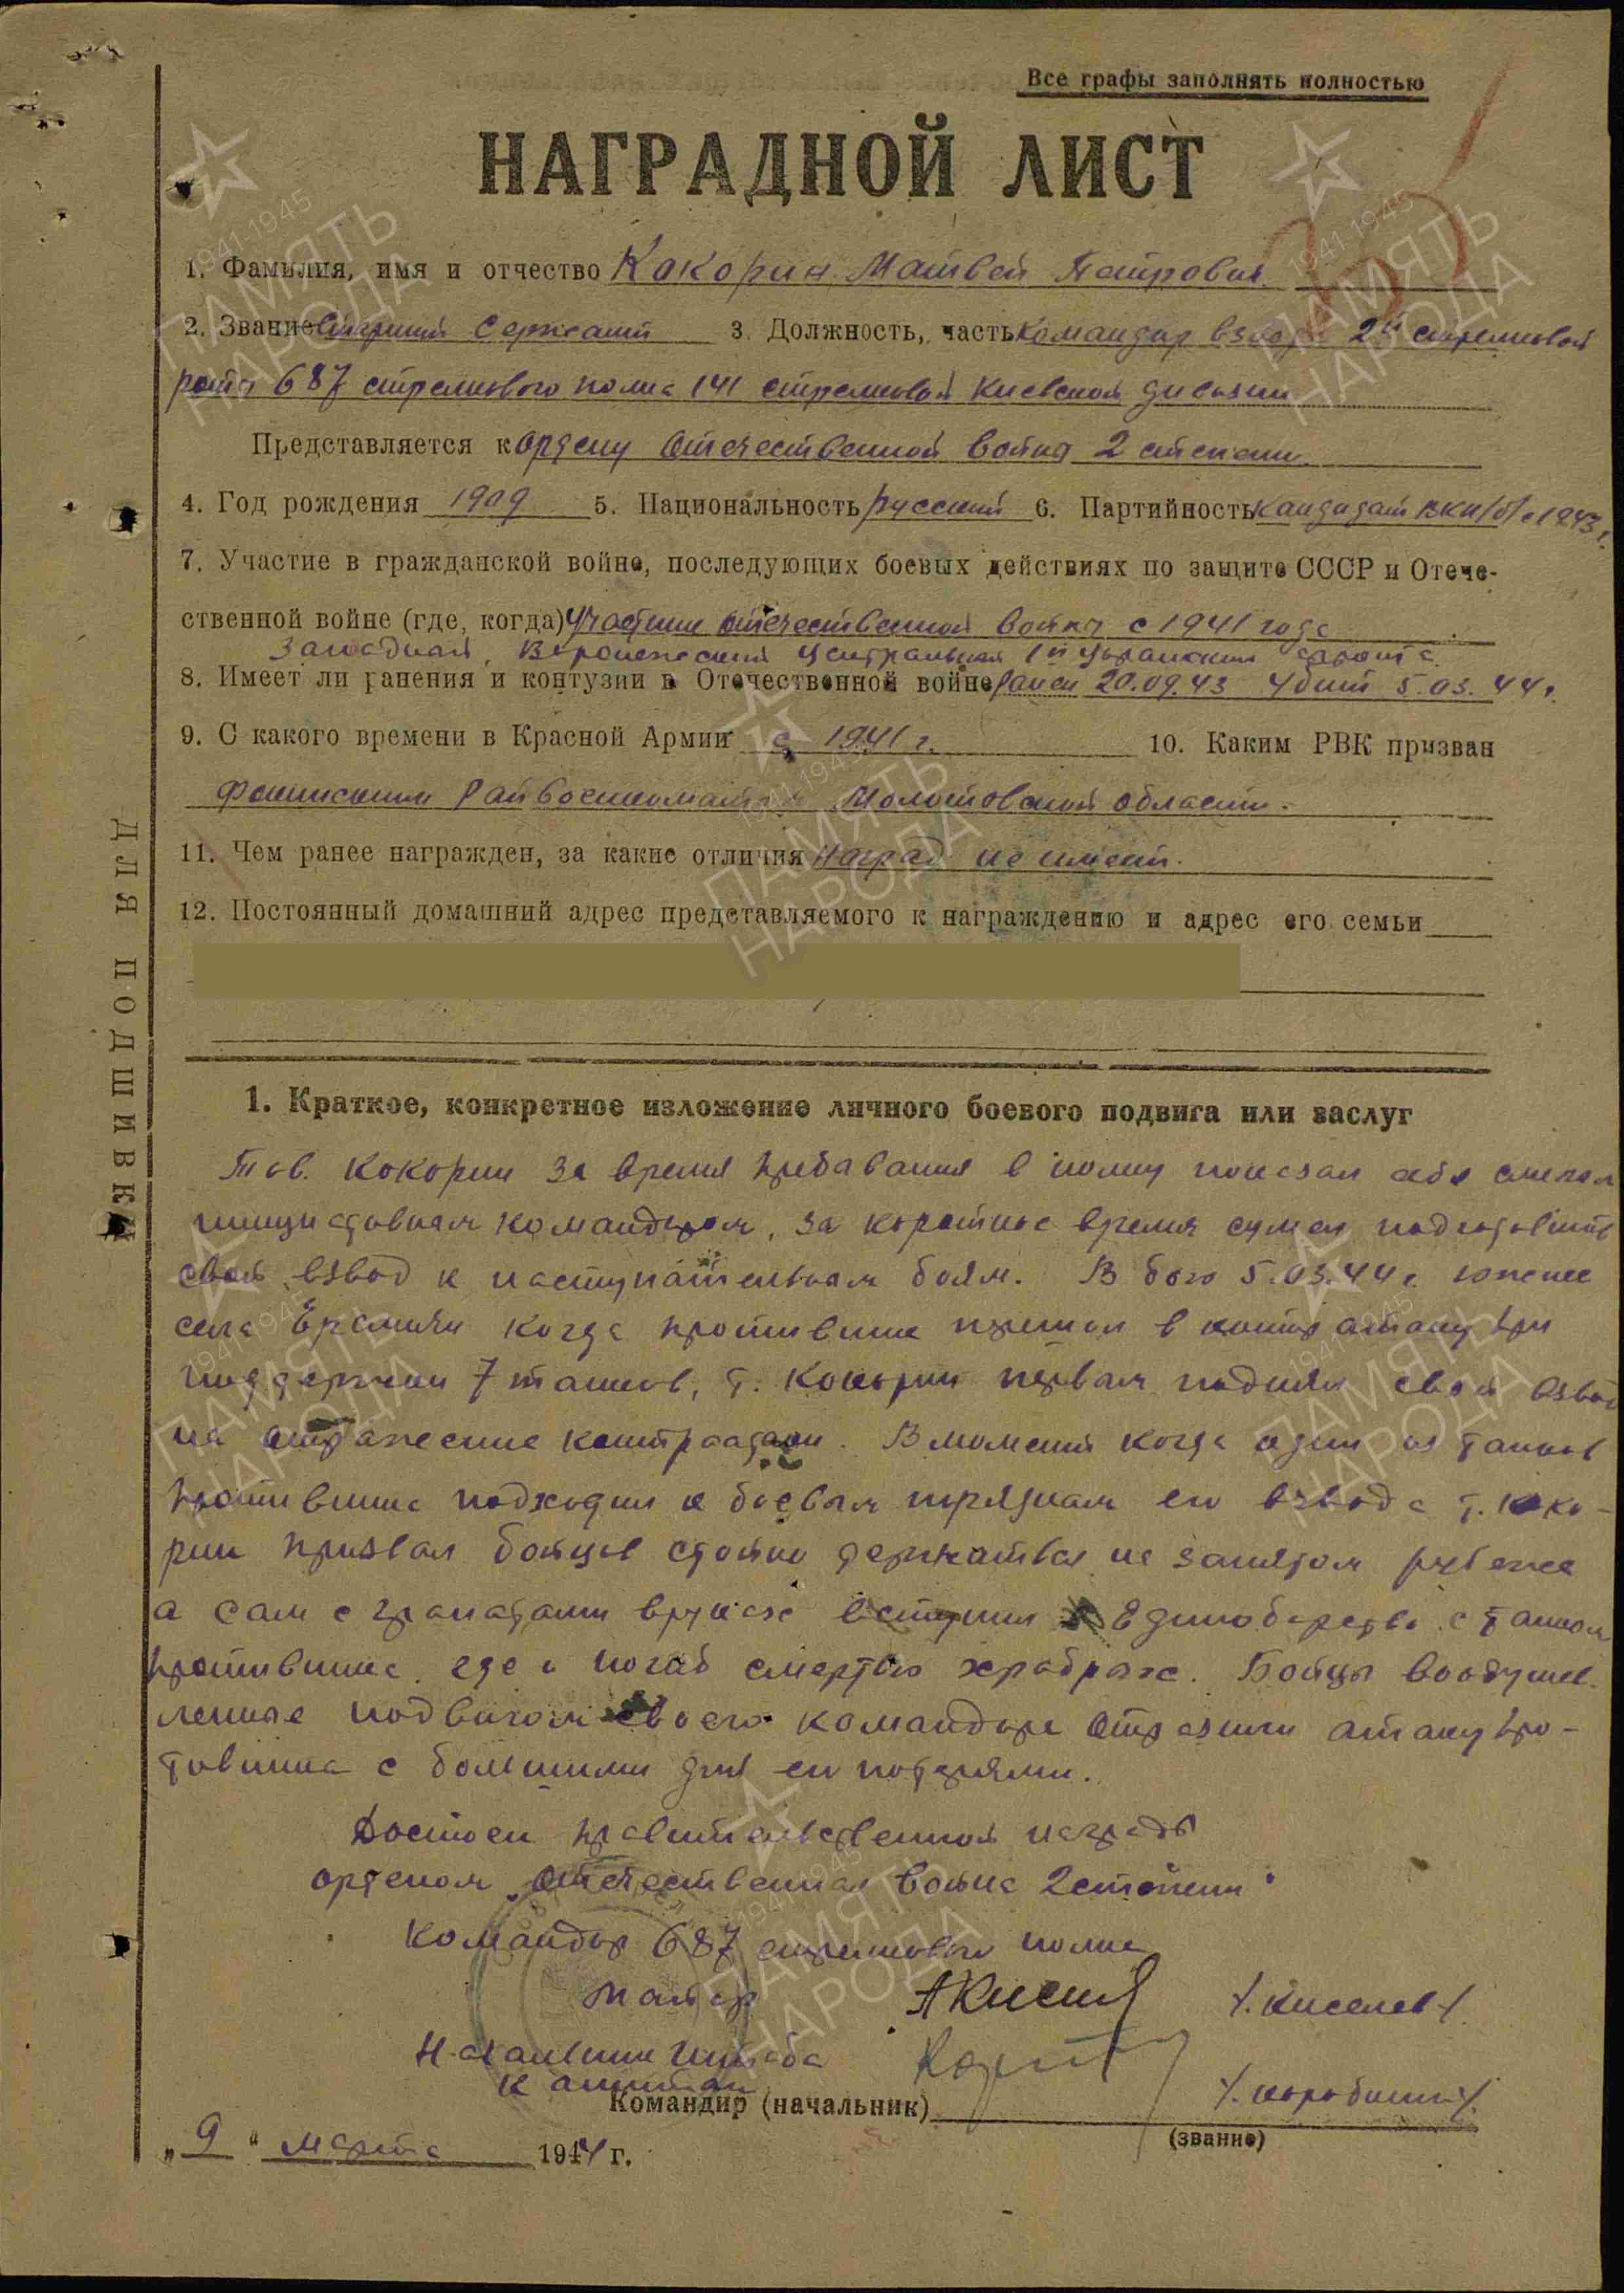 Все графы заполнять полностью
НАГРАДНОЙ ЛИСТ
1. Фамилия, имя и отчество Кокорин Матвей Петрович
2. Звание Старший Сержант 3. Должность, часть командир взвода 2й стрелковой
роты 687 стрелкового полка 141 стрелковой Киевской дивизии
Представляется к ордену Отечественной война 2 степени
4. Год рождения 1909 5. Национальность русский 6. Партийность кандидат ВКП/б/ с 1943 г.
7. Участие в гражданской войне, последующих боевых действиях по защите СССР и Отече-
ственной войне (где, когда) участник отечественной войны с 1941 года
Западный, Воронежский Центральный 1й Украинский фронта
8. Имеет ли ранения и контузии в Отечественной войне ранен 20.09.43 Убит 5.03.44 г.
9. С какого времени в Красной Армии с 1941 г. 10. Каким РВК призван
Райвоенкоматом Молотовской области.
11. Чем ранее награжден, за какие отличия наград не имеет.
12. Постоянный домашний адрес представляемого к награждению и адрес его семьи
ДЛЯ ПОДШИВКИ
1. Краткое, конкретное изложение личного боевого подвига или заслуг
Тов. Кокорин за время пребавания в полку показал себя смелым
командиром, за короткое время сумел подготовить
свой взвод к наступательным боям. В бою 5.03.44 г. южнее
села когда противник перешол в контратаку при
поддержки 7 танков, т. Кокорин первым поднял свой взвод
на отражение контратаки. В момент когда один из танков
противника подходил к боевым порядкам его взвода т. Коко-
рин призвал бойцов стойко держаться на занятом рубеже
а сам с гранатами в руках вступил в Единоборство с танком
противника где и погиб смертью храбрых. Бойцы воодушев-
леные подвигом своего командира отразили атаку про-
тивника с большими для его потерями.
Достоен правительственной награды
орденом „Отечественная война 2 степени"
Командир 687 стрелкового полка
Майор /. Киселев /.
Начальник штаба
Капитан
Командир (начальник) /. Коробкин /.
(звание)
„ 9 " марта 1944 г.
1941-1945
ПАМЯТЬ
НАРОДА